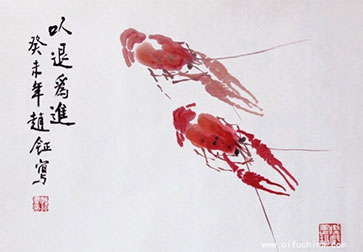 以退爲進
癸未年趙鉦寫
www.cifuchina.com